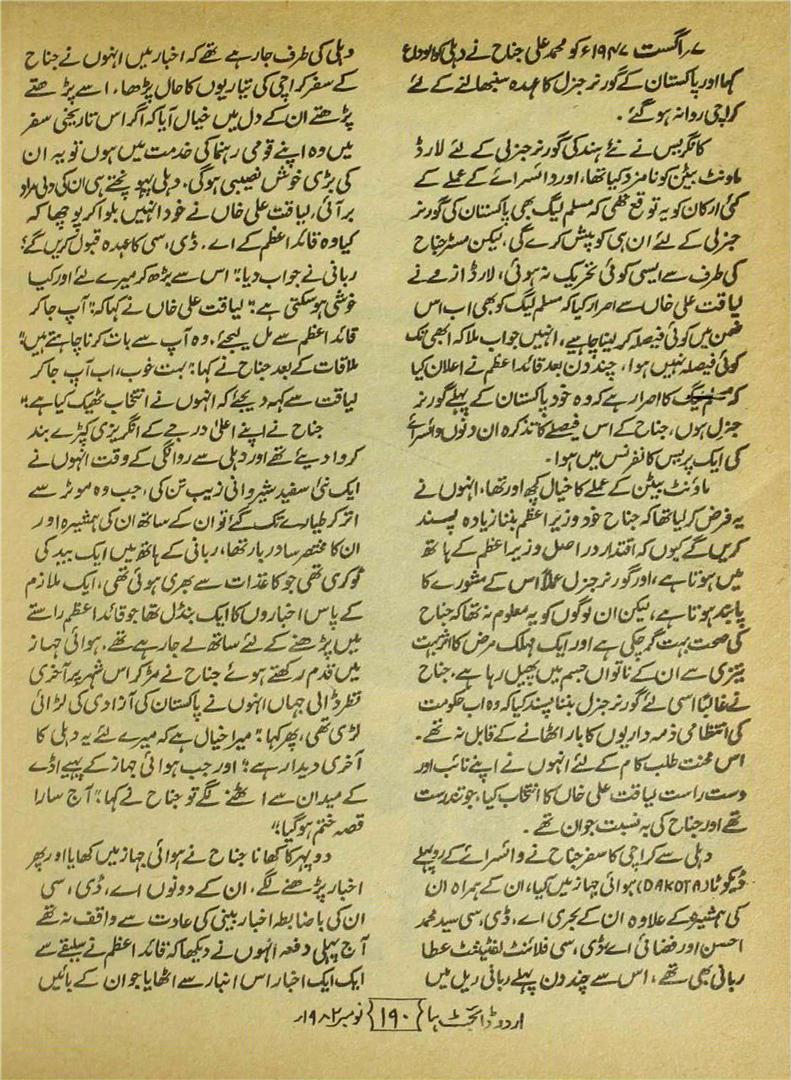 ۷؍اگست ۱۹۴۷ء کو محمد علی جناح نے دہلی کو الوداع
کہا اور پاکستان کے گورنر جنرل کا عہدہ سنبھالنے کے لئے
کراچی روانہ ہو گئے ۔
کانگریس نے نئے ہند کی گورنر جنرلی کے لئے لارڈ
ماونٹ بیٹن کو نامزد کیا تھا، اور وائسرائے کے عملے کے
کئی ارکان کو یہ توقع تھی کہ مسلم لیگ بھی پاکستان کی گورنر
جنرلی کے لئے ان ہی کو پیش کرے گی، لیکن مسٹر جناح
کی طرف سے ایسی کوئی تحریک نہ ہوئی، لارڈ ازمے نے
لیاقت علی خاں سے اصرار کیا کہ مسلم لیگ کو بھی اب اس
ضمن میں کوئی فیصلہ کر لینا چاہیے، انہیں جواب ملا کہ ابھی تک
کوئی فیصلہ نہیں ہوا، چند دن بعد قائد اعظم نے اعلان کیا
کہ مسلم لیگ کا اصرار ہے کہ وہ خود پاکستان کے پہلے گورنر
جنرل ہوں، جناح کے اس فیصلے کا تذکرہ ان دنوں وائسرائے
کی ایک پریس کانفرنس میں ہوا۔
ماؤنٹ بیٹن کے عملے کا خیال کچھ اور تھا، انہوں نے
یہ فرض کر لیا تھا کہ جناح خود وزیر اعظم بننا زیادہ پسند
کریں گے کیوں کہ اقتدار در اصل وزیر اعظم کے ہاتھ
میں ہوتا ہے، اور گورنر جنرل عملاً اس کے مشورے کا
پابند ہوتا ہے، لیکن ان لوگوں کو یہ معلوم نہ تھا کہ جناح
کی صحت بہت گر چکی ہے اور ایک مہلک مرض کا اثر بہت
تیزی سے ان کے ناتواں جسم میں پھیل رہا ہے، جناح
نے غالباً اسی لئے گورنر جنرل بننا پسند کیا کہ وہ اب حکومت
کی انتظامی ذمہ داریوں کا بار اٹھانے کے قابل نہ تھے۔
اس محنت طلب کام کے لئے انہوں نے اپنے نائب اور
دست راست لیاقت علی خاں کا انتخاب کیا، جو تندرست
تھے اور جناح کی بہ نسبت جوان تھے ۔
دہلی سے کراچی کا سفر جناح نے وائسرائے کے روپہلے
ڈیکوٹا (DAKOTA) ہوائی جہاز میں کیا، ان کے ہمراہ ان
کی ہمشیرہ کے علاوہ ان کے بحری اے، ڈی، سی سید محمد
احسن اور فضائی اے ڈی، سی فلائٹ لفٹیننٹ عطا
ربانی بھی تھے، اس سے چند دن پہلے ربانی ریل میں
دہلی کی طرف جا رہے تھے کہ اخبار میں انہوں نے جناح
کے سفر کراچی کی تیاریوں کا حال پڑھا، اسے پڑھتے
پڑھتے ان کے دل میں خیال آیا کہ اگر اس تاریخی سفر
میں وہ اپنے قومی رہنما کی خدمت میں ہوں تو یہ ان
کی بڑی خوش نصیبی ہوگی، دہلی پہونچتے ہی ان کی دلی مراد
بر آئی، لیاقت علی خاں نے خود انہیں بلوا کر پوچھا کہ
کیا وہ قائد اعظم کے اے۔ ڈی، سی کا عہدہ قبول کریں گے؟
ربانی نے جواب دیا، "اس سے بڑھ کر میرے لئے اور کیا
خوشی ہو سکتی ہے" لیاقت علی خاں نے کہا کہ "آپ جا کر
قائد اعظم سے مل لیجئے، وہ آپ سے بات کرنا چاہتے ہیں"
ملاقات کے بعد جناح نے کہا، "بہت خوب، اب آپ جا کر
لیاقت سے کہہ دیجئے کہ انہوں نے انتخاب ٹھیک کیا ہے"
جناح نے اپنے اعلیٰ درجے کے انگریزی کپڑے بند
کروا دیئے تھے اور دہلی سے روانگی کے وقت انہوں نے
ایک نئی سفید شیروانی زیب تن کی، جب وہ موٹر سے
اتر کر طیارے تک گئے تو ان کے ساتھ ان کی ہمشیرہ اور
ان کا مختصر سا دربار تھا، ربانی کے ہاتھ میں ایک بید کی
ٹوکری تھی جو کاغذات سے بھری ہوئی تھی، ایک ملازم
کے پاس اخباروں کا ایک بنڈل تھا جو قائد اعظم راستے
میں پڑھنے کے لئے ساتھ لے جا رہے تھے۔ ہوائی جہاز
میں قدم رکھتے ہوئے جناح نے مڑ کر اس شہر پر آخری
نظر ڈالی جہاں انہوں نے پاکستان کی آزادی کی لڑائی
لڑی تھی، پھر کہا، "میرا خیال ہے کہ میرے لئے یہ دہلی کا
آخری دیدار ہے" اور جب ہوائی جہاز کے پہیے اڈے
کے میدان سے اٹھنے لگے تو جناح نے کہا، "آج سارا
قصہ ختم ہو گیا"
دوپہر کا کھانا جناح نے ہوائی جہاز میں کھایا اور پھر
اخبار پڑھنے لگے، ان کے دونوں اے، ڈی، سی
ان کی باضابطہ اخبار بینی کی عادت سے واقف نہ تھے
آج پہلی دفعہ انہوں نے دیکھا کہ قائد اعظم نے سلیقے سے
ایک ایک اخبار اس انبار سے اٹھایا جو ان کے بائیں
اردو ڈائجسٹ ہما {۱۹۰} نومبر ۱۹۸۲ء